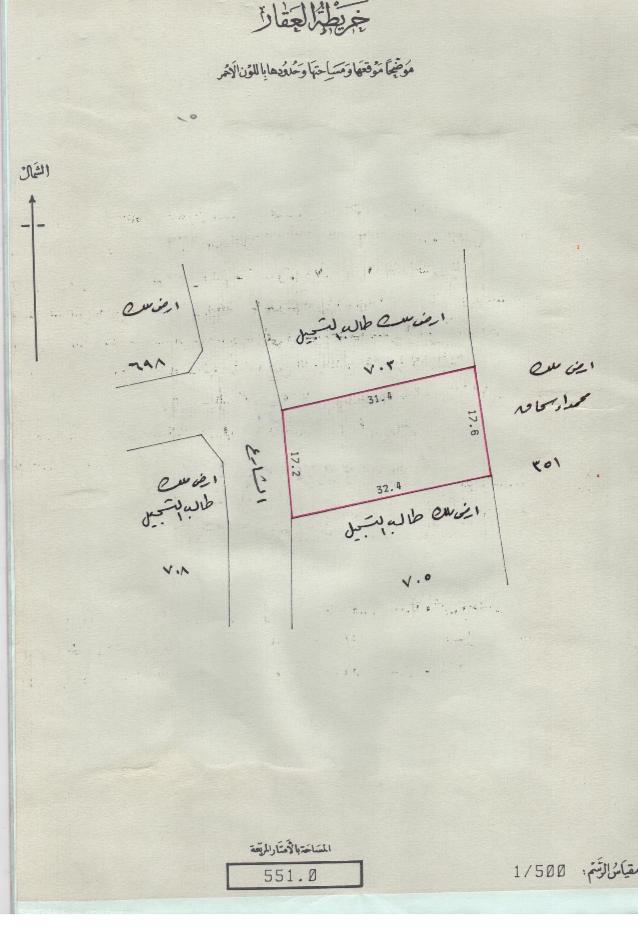 خريطة العقار
موضحا موقعها ومساحتها وحدودها باللون الأحمر
١٥
الشمال
ارض ملك
٦٩٨
ارض ملك طالب التسجيل
٧٠٣
ارض ملك
محمد اسحاق
٣٥١
31.4
17.6
17.2
32.4
الشارع
ارض ملك
طالب التسجيل
٧٠٨
ارض ملك طالب التسجيل
٧٠٥
المساحة بالأمتار المربعة
551.0
مقياس الرسم: 1/500